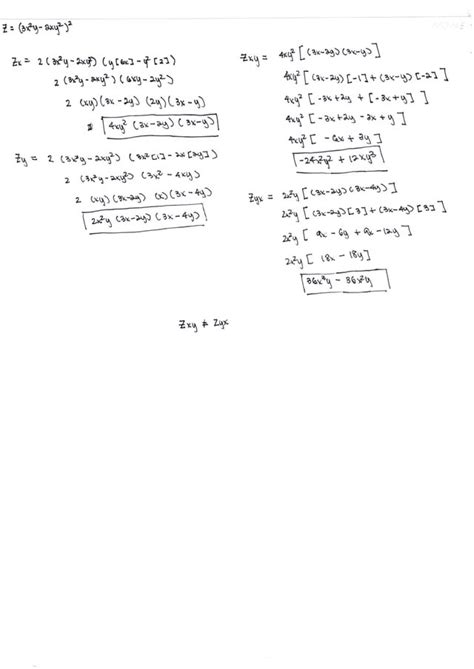 Z = (3x²y - 2xy²)²
Zx = 2 (3x²y - 2xy²) (y[6x] - y²[2])
2 (3x²y - 2xy²) (6xy - 2y²)
2 (xy)(3x - 2y) (2y)(3x - y)
4xy² (3x - 2y) (3x - y)
Zy = 2 (3x²y - 2xy²) (3x²[1] - 2x[2y])
2 (3x²y - 2xy²) (3x² - 4xy)
2 (xy)(3x - 2y) (x)(3x - 4y)
2x²y (3x - 2y) (3x - 4y)
Zxy = 4xy² [(3x - 2y)(3x - y)]
4xy² [(3x - 2y)[-1] + (3x - y)[-2]]
4xy² [-3x + 2y + [-3x + y]]
4xy² [-3x + 2y - 3x + y]
4xy² [-6x + 3y]
-24x²y² + 12xy³
Zyx = 2x²y [(3x - 2y)(3x - 4y)]
2x²y [(3x - 2y)[3] + (3x - 4y)[3]]
2x²y [9x - 6y + 9x - 12y]
2x²y [18x - 18y]
36x³y - 36x²y
Zxy ≠ Zyx